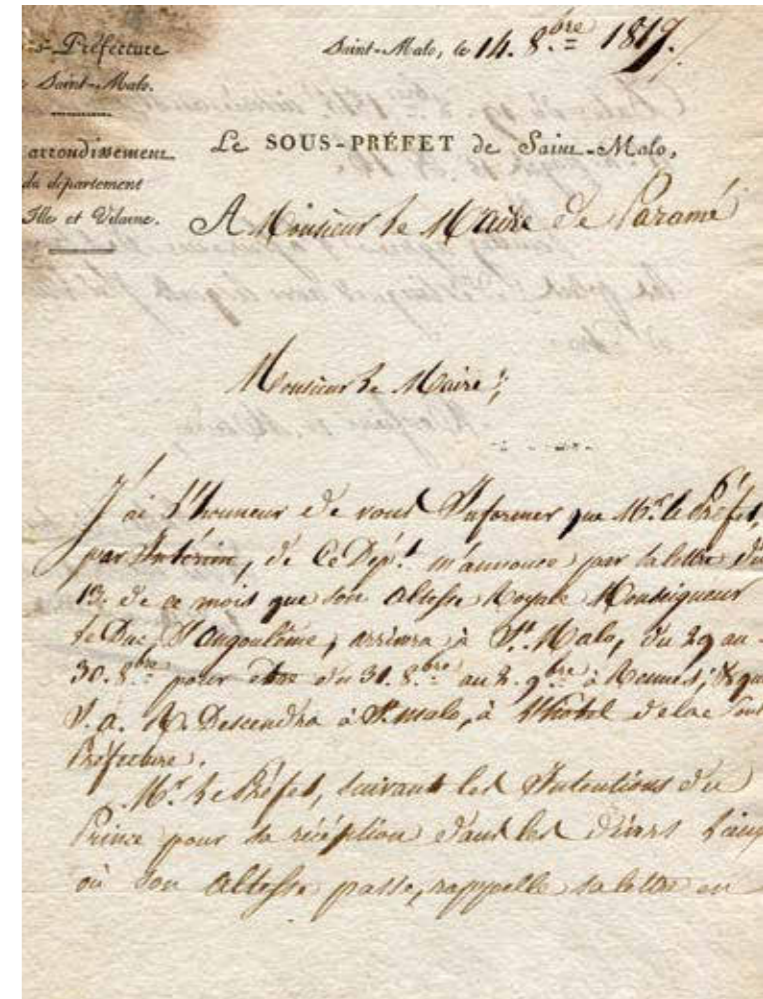 s-Préfecture
Saint-Malo.
arrondissement
du département
Ille et Vilaine.
Saint-Malo, le 14. 8.bre 1817.
Le SOUS-PRÉFET de Saint-Malo,
A Monsieur le Maire de Paramé
Monsieur le Maire ;
J'ai l'honneur de vous Informer que Mr. le Préfet,
par Intérim, de Ce Dépt. m'annonce par sa lettre du
13. de ce mois que son altesse Royale Monseigneur
le Duc d'angoulême, arrivera à St. Malo, du 29 au
30. 8.bre pour être du 31. 8.bre au 2. 9.bre à Rennes; & que
S. a. R. Descendra à St. malo, à l'hôtel de la Sous
Préfecture.
Mr. le Préfet, suivant les Intentions du
Prince pour sa réception dans les divers Lieux
où Son Altesse passe, rappelle sa lettre en